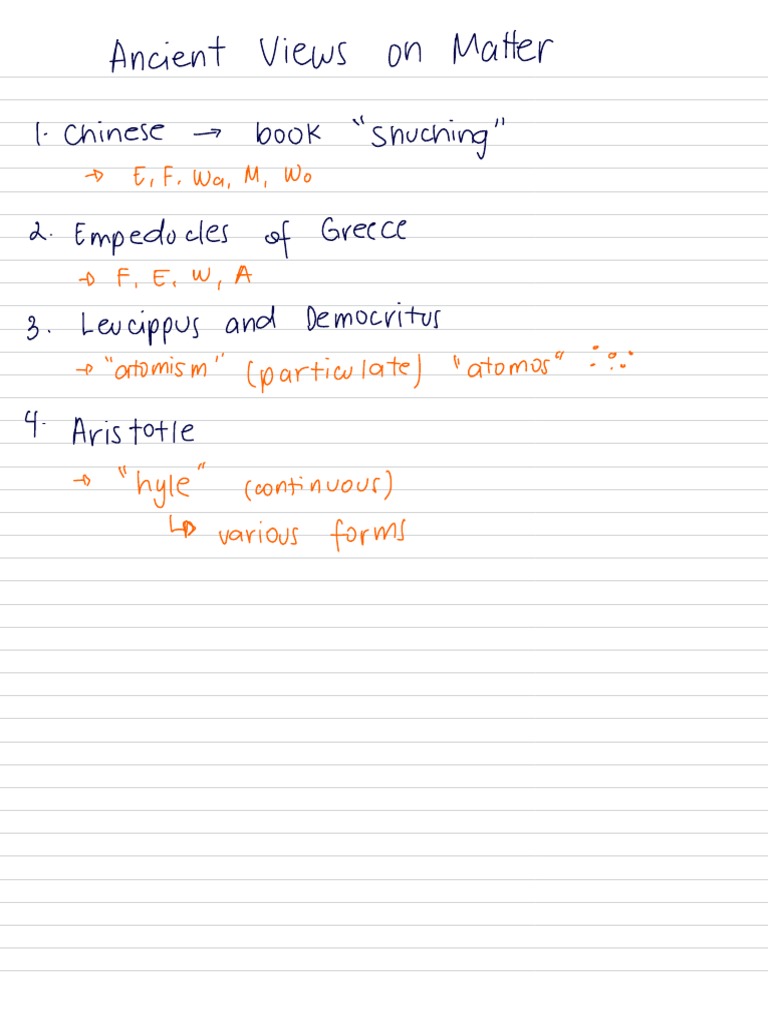 Ancient Views on Matter
1. Chinese → book "Shuching"
→ E, F, Wa, M, Wo
2. Empedocles of Greece
→ F, E, W, A
3. Leucippus and Democritus
→ "atomism" (particulate) "atomos"
4. Aristotle
→ "hyle" (continuous)
↳ various forms